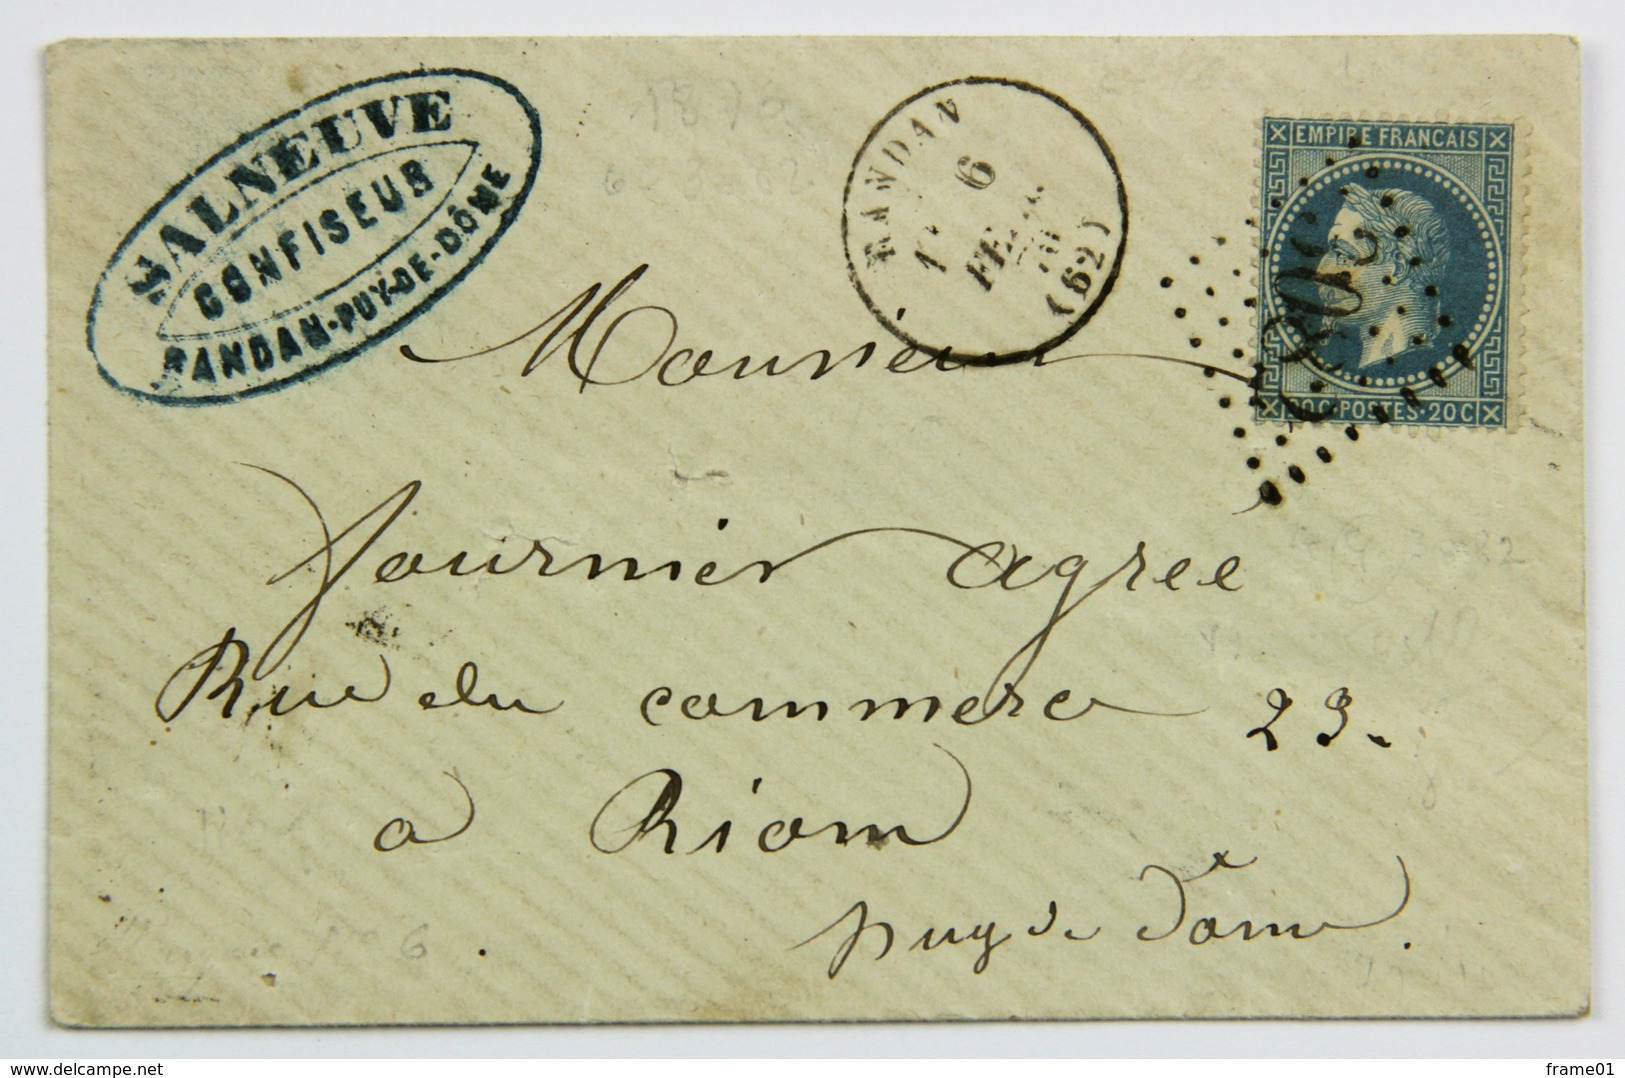 SALNEUVE
CONFISEUR
RANDAN-PUY-DE-DÔME
1870
RANDAN
6
(62)
EMPIRE FRANCAIS
20C·POSTES·20C
Monsieur
Fournier agree
Rue du commerce 23.
a Riom
puy de Dôme.
6
www.delcampe.net
frame01